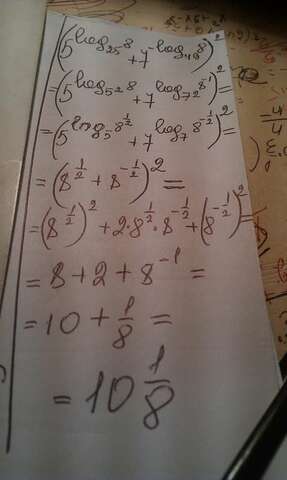 (5^{log_{25} 8} + 7^{log_{49} 8})^2
= (5^{log_{5^2} 8} + 7^{log_{7^2} 8^{-1}})^2 =
= (5^{log_5 8^{\frac{1}{2}}} + 7^{log_7 8^{-\frac{1}{2}}})^2 =
= (8^{\frac{1}{2}} + 8^{-\frac{1}{2}})^2 =
= (8^{\frac{1}{2}})^2 + 2 \cdot 8^{\frac{1}{2}} \cdot 8^{-\frac{1}{2}} + (8^{-\frac{1}{2}})^2 =
= 8 + 2 + 8^{-1} =
= 10 + \frac{1}{8} =
= 10 \frac{1}{8}